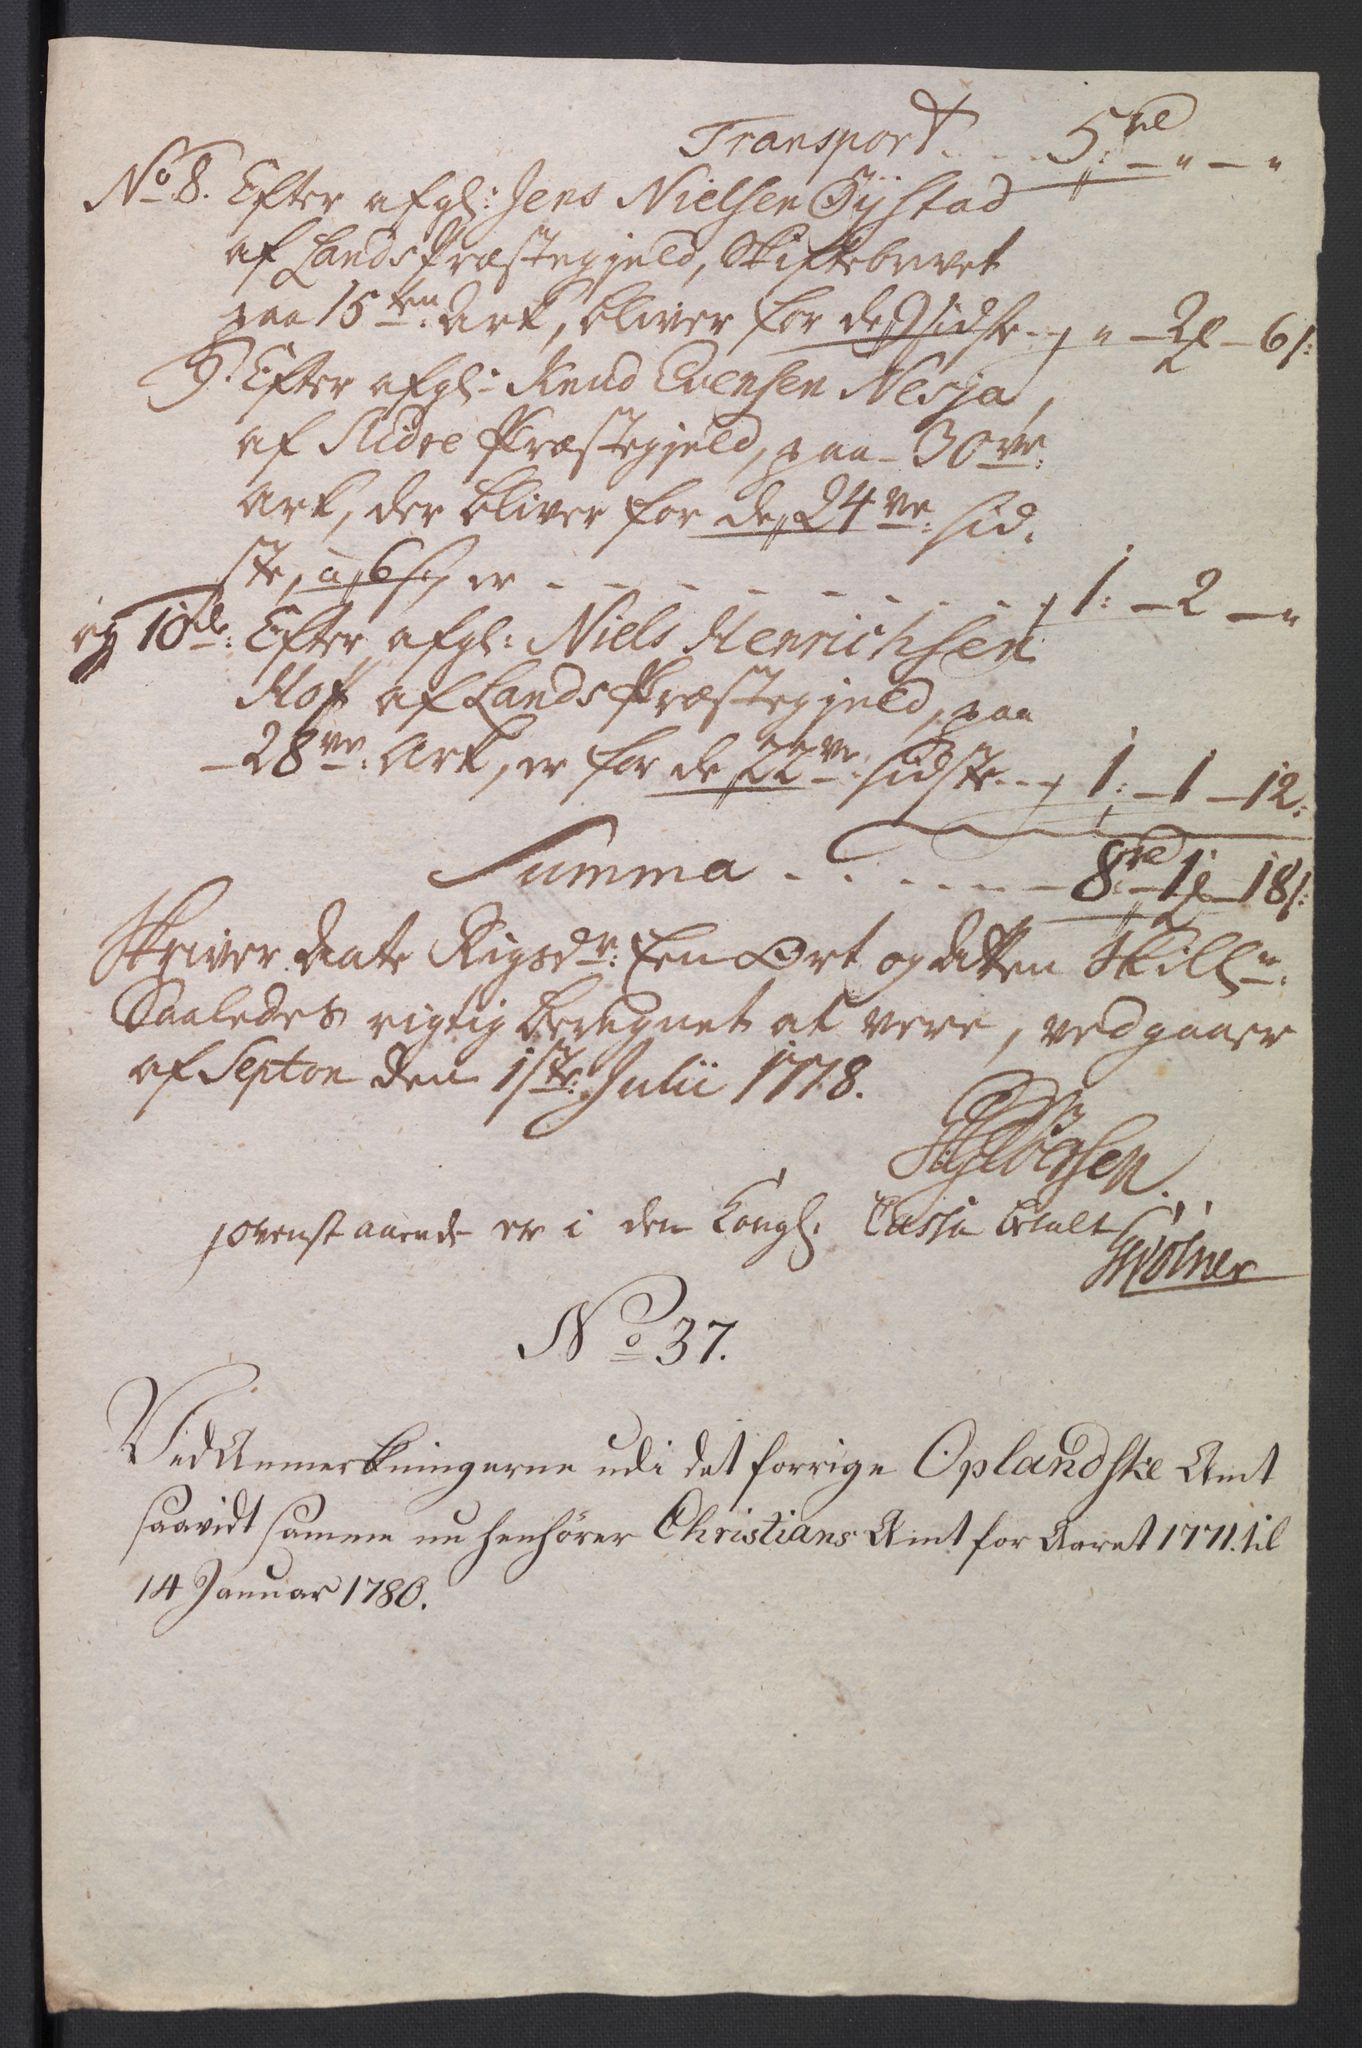 Transport . . . 5 rd — " — "
No 8. Efter afgl: Jens Nielsen Öÿstad
af Lands Præstegjeld, Skiftebrevet
paa 15ten: Ark, bliver for de 9 sidste - - " — 2 — 6 s:
9. Efter afgl: Knud Evensen Nesja,
af Slidre Præstegjeld, paa 30ve:
Ark, der bliver for de 24ve: sid-
ste, a 6 s, er - - - - - - - 1: — 2 — "
og 10de: Efter afgl: Niels Henrichsen
Hoff af Lands Præstegjeld, paa
28ve: Ark, er for de 22ve: sidste - - 1: — 1 — 12:
Summa . . . . . . 8 rd — 1 — 18 s:
Skriver Aate Rigsdr: Een Ort og Atten Skilln:
Saaledes rigtig beregnet at vere, vedgaaer
af Septon den 1ste: Julii 1778.
ovenstaaende er i den Kongl: Cassa betalt
No 37.
Ved Anmerkningerne udi det forrige Oplandske Amt
saavidt samme nu henhörer Christians Amt for Aaret 1771. til
14 Januar 1780.